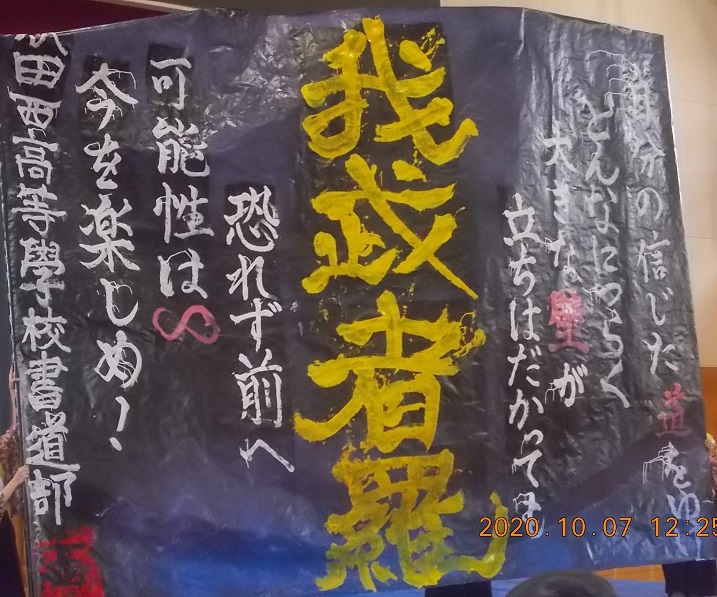 自分の信じた道をゆけ
どんなにつらく
大きな壁が
立ちはだかっても
我武者羅
恐れず前へ
可能性は∞
今を楽しめ！
田西高等學校書道部
2020.10.07 12:25